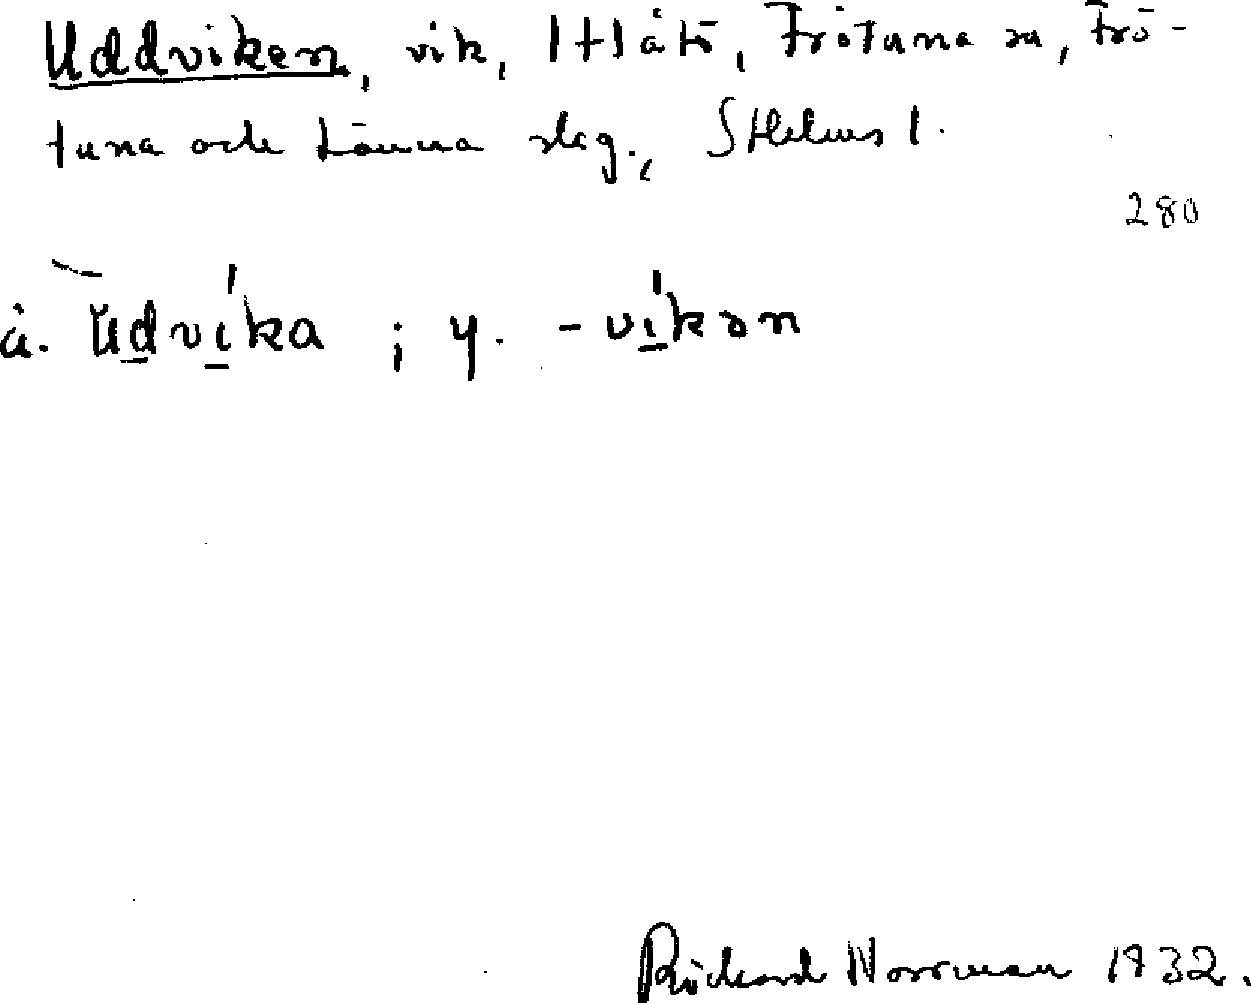 Uddviken, vik, Itlåtö, Frötuna sn, Frö-
tuna och Länna slag., Sthlms l.
280
ä. ŭdvíka ; y. -víkən
Richard Norrman 1932.